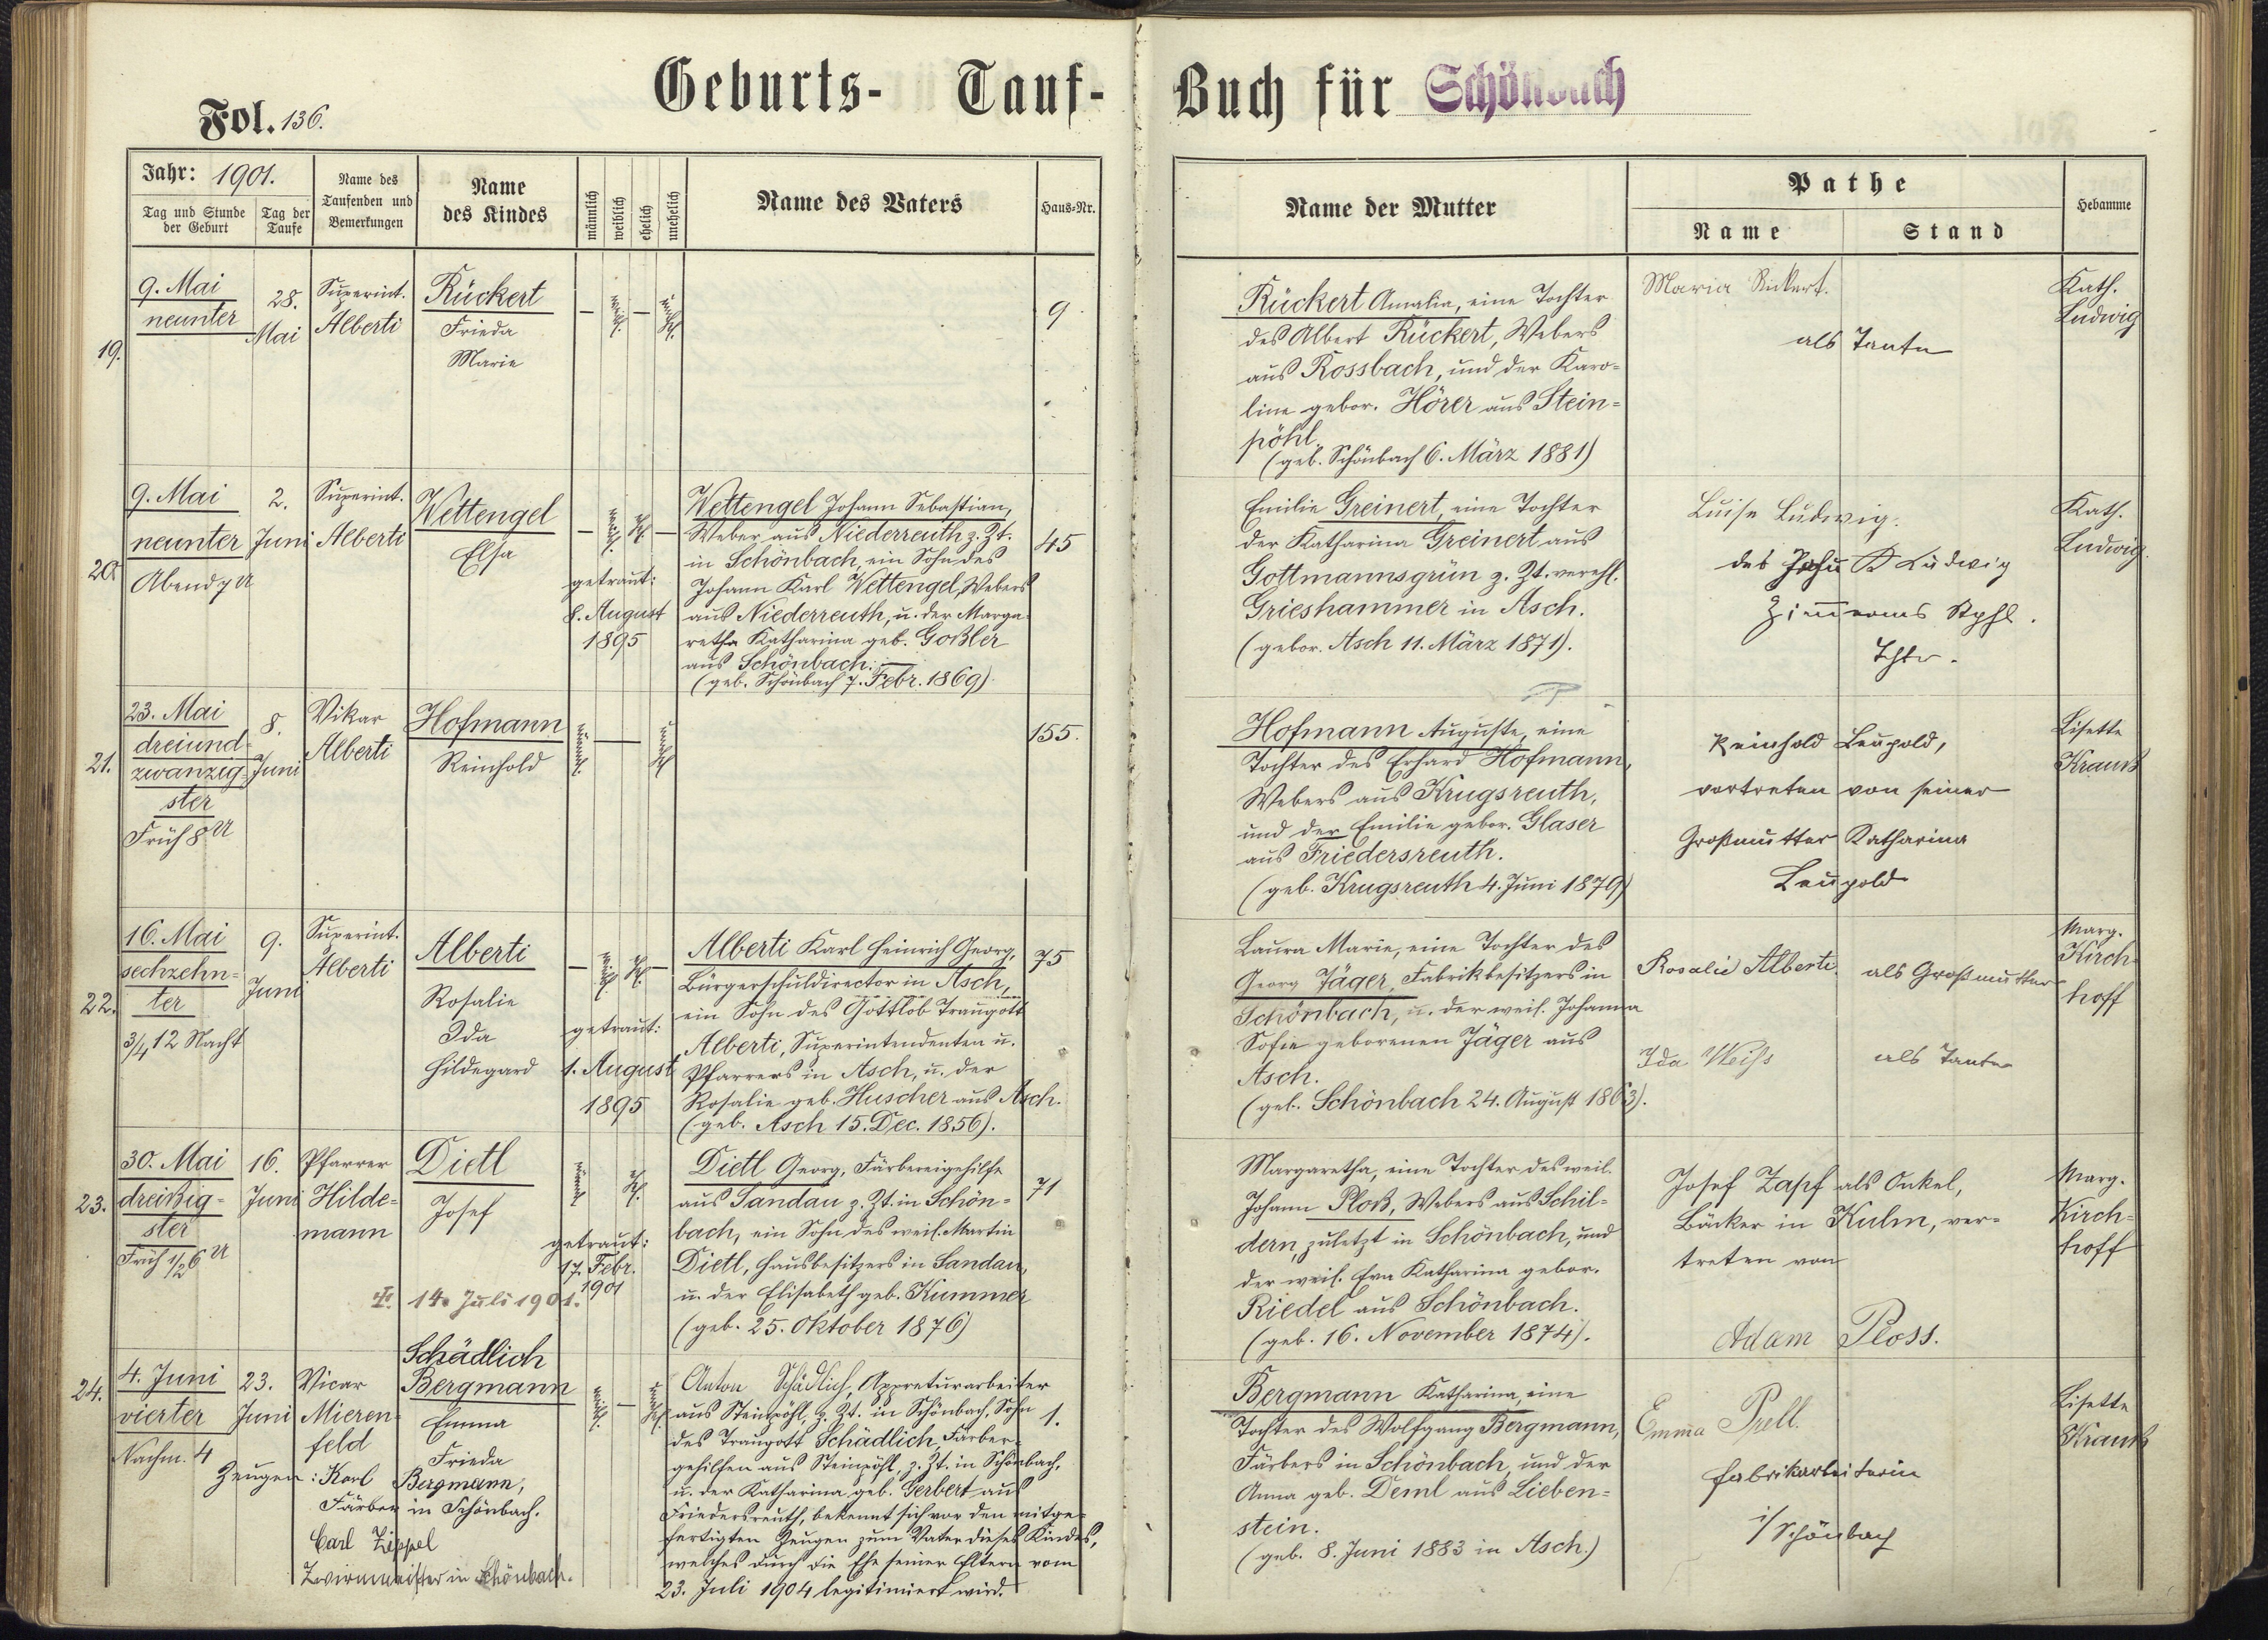 Geburts- Tauf- Buch für Schönbach
Fol. 136.
Jahr: 1901.
Tag und Stunde der Geburt
Tag der Taufe
Name des Taufenden und Bemerkungen
Name des Kindes
männlich
weiblich
ehelich
unehelich
Name des Vaters
Haus-Nr.
Name der Mutter
Pathe
Name
Stand
Hebamme
19.
9. Mai
neunter
28.
Mai
Superint.
Alberti
Rückert
Frieda
Marie
— weibl. — unehl.
9
Rückert Amalia, eine Tochter
des Albert Rückert, Webers
aus Rossbach, und der Karo=
line gebor. Hörer aus Stein=
pöhl.
(geb. Schönbach 6. März 1881)
Maria Rückert.
als Tante
Kath.
Ludwig
20
9. Mai
neunter
Abend 7 U
2.
Juni
Superint.
Alberti
Wettengel
Elsa
— weibl. ehl. —
getraut:
8. August
1895
Wettengel Johann Sebastian,
Weber aus Niederreuth z. Zt.
in Schönbach, ein Sohn des
Johann Karl Wettengel, Webers
aus Niederreuth, u. der Marga
retha Katharina geb. Goßler
aus Schönbach.
(geb. Schönbach 7. Febr. 1869)
45
Emilie Greinert, eine Tochter
der Katharina Greinert aus
Gottmannsgrün z. Zt. verehl.
Grieshammer in Asch.
(gebor. Asch 11. März 1871).
Luise Ludwig.
des Ludwig
Tchtr.
Kath.
Ludwig.
21.
23. Mai
dreiund=
zwanzig=
ster
Früh 8 U
8.
Juni
Vikar
Alberti
Hofmann
Reinhold
männl. — unehl.
155.
Hofmann Auguste, eine
Tochter des Erhard Hofmann,
Webers aus Krugsreuth,
und der Emilie gebor. Glaser
aus Friedersreuth.
(geb. Krugsreuth 4. Juni 1879)
Reinhold Leupold,
vertreten von seiner
Großmutter Katharina
Leupold
Lisette
Krauß
22.
16. Mai
sechzehn=
ter
3/4 12 Nacht
9.
Juni
Superint.
Alberti
Alberti
Rosalie
Ida
Hildegard
— weibl. ehl. —
getraut:
1. August
1895
Alberti Karl Heinrich Georg,
Bürgerschuldirector in Asch,
ein Sohn des Gottlob Traugott
Alberti, Superintendenten u.
Pfarrers in Asch, u. der
Rosalie geb. Huscher aus Asch.
(geb. Asch 15. Dec. 1856).
75
Laura Marie, eine Tochter des
Georg Jäger, Fabrikbesitzers in
Schönbach, u. der weil. Johanna
Sofie geborenen Jäger aus
Asch.
(geb. Schönbach 24. August 1863).
Rosalie Alberti. als Großmutter
Ida Weiss als Tante
Marg.
Kirch=
hoff
23.
30. Mai
dreißig=
ster
Früh 1/2 6 U
16.
Juni
Pfarrer
Hilde=
mann
Dietl
Josef
männl. ehl.
getraut:
17. Febr.
1901
14. Juli 1901.
Dietl Georg, Färbereigehilfe
aus Sandau z. Zt. in Schön=
bach, ein Sohn des weil. Martin
Dietl, Hausbesitzers in Sandau,
u. der Elisabeth geb. Kummer
(geb. 25. Oktober 1876)
71
Margaretha, eine Tochter des weil.
Johann Ploß, Webers aus Schil=
dern, zuletzt in Schönbach, und
der weil. Eva Katharina gebor.
Riedel aus Schönbach.
(geb. 16. November 1874).
Josef Zapf als Onkel,
Bäcker in Kulm, ver=
treten von
Adam Ploss.
Marg.
Kirch=
hoff
24.
4. Juni
vierter
Nachm. 4
23.
Juni
Vicar
Mieren=
feld
Schädlich
Bergmann
Emma
Frieda
weibl. — unehl.
Zeugen: Karl Bergmann,
Färber in Schönbach.
Carl Zippel
Zwirnmeister in Schönbach.
Anton Schädlich, Appreturarbeiter
aus Steinpöhl, z. Zt. in Schönbach, Sohn
des Traugott Schädlich, Färber=
gehilfen aus Steinpöhl, z. Zt. in Schönbach,
u. der Katharina geb. Gerbert aus
Friedersreuth, bekennt sich vor den mitge=
fertigten Zeugen zum Vater dieses Kindes,
welches durch die Ehe seiner Eltern vom
23. Juli 1904 legitimiert wird.
1.
Bergmann Katharina, eine
Tochter des Wolfgang Bergmann,
Färbers in Schönbach, und der
Anna geb. Deml aus Lieben=
stein.
(geb. 8. Juni 1883 in Asch.)
Emma Prell.
Fabrikarbeiterin
i/ Schönbach
Lisette
Krauß